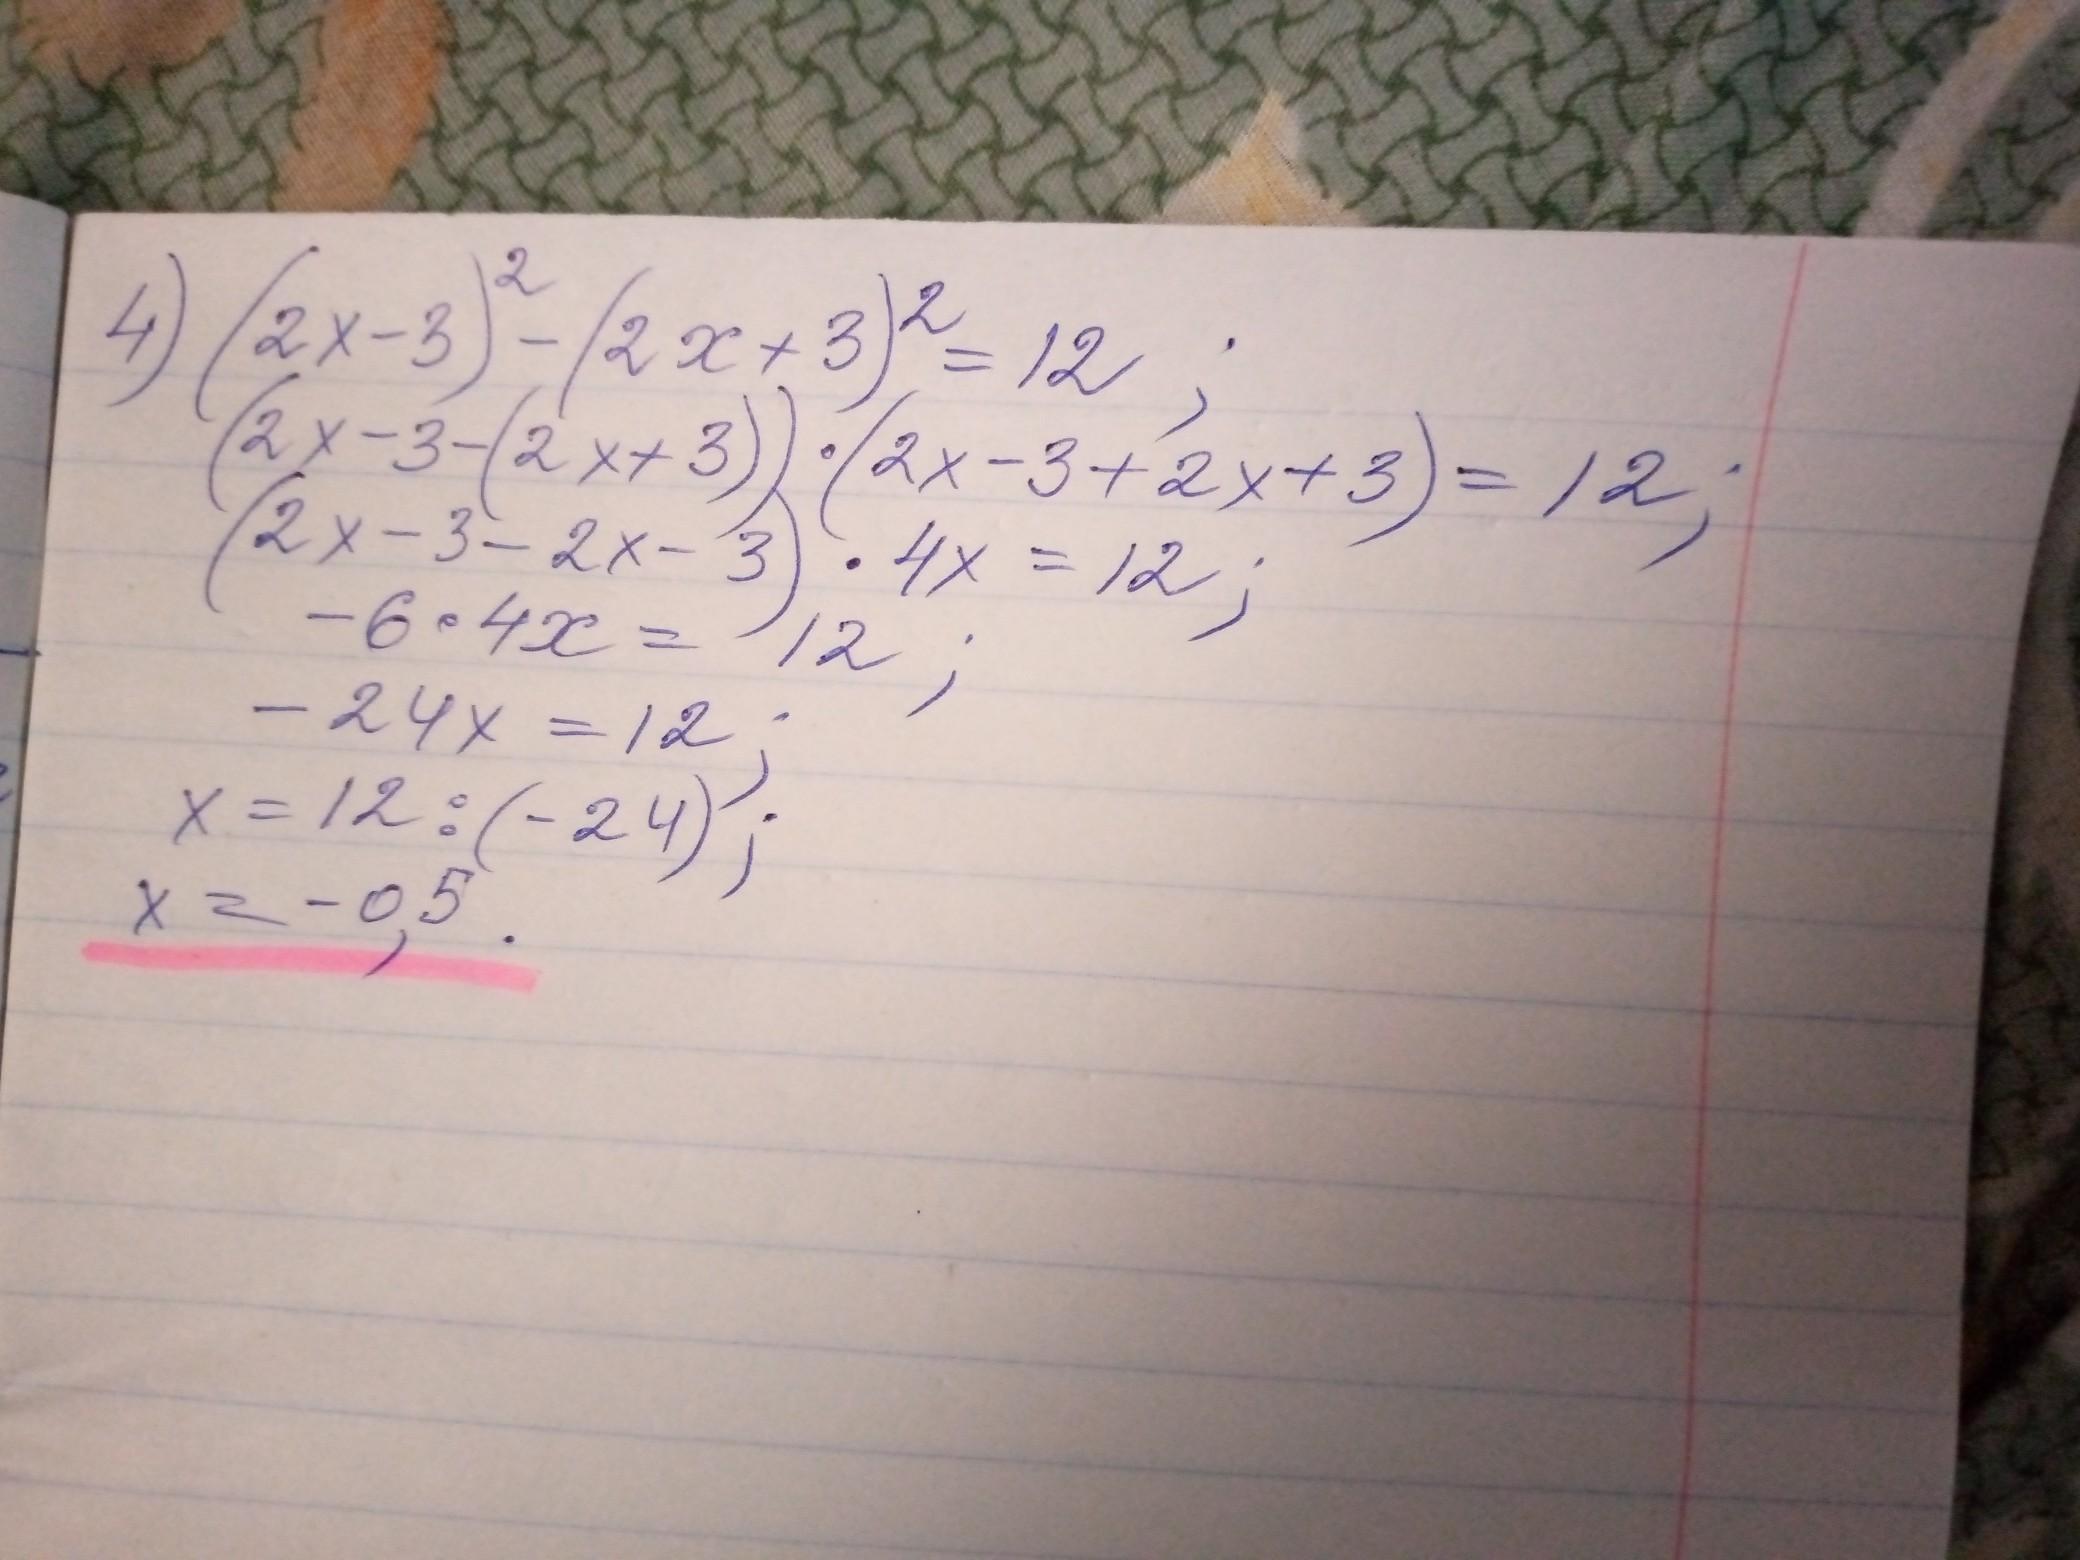 4) (2x-3)² - (2x+3)² = 12 ;
(2x-3-(2x+3))·(2x-3+2x+3) = 12;
(2x-3-2x-3)·4x = 12;
-6·4x = 12 ;
-24x = 12;
x = 12:(-24);
x = -0,5.